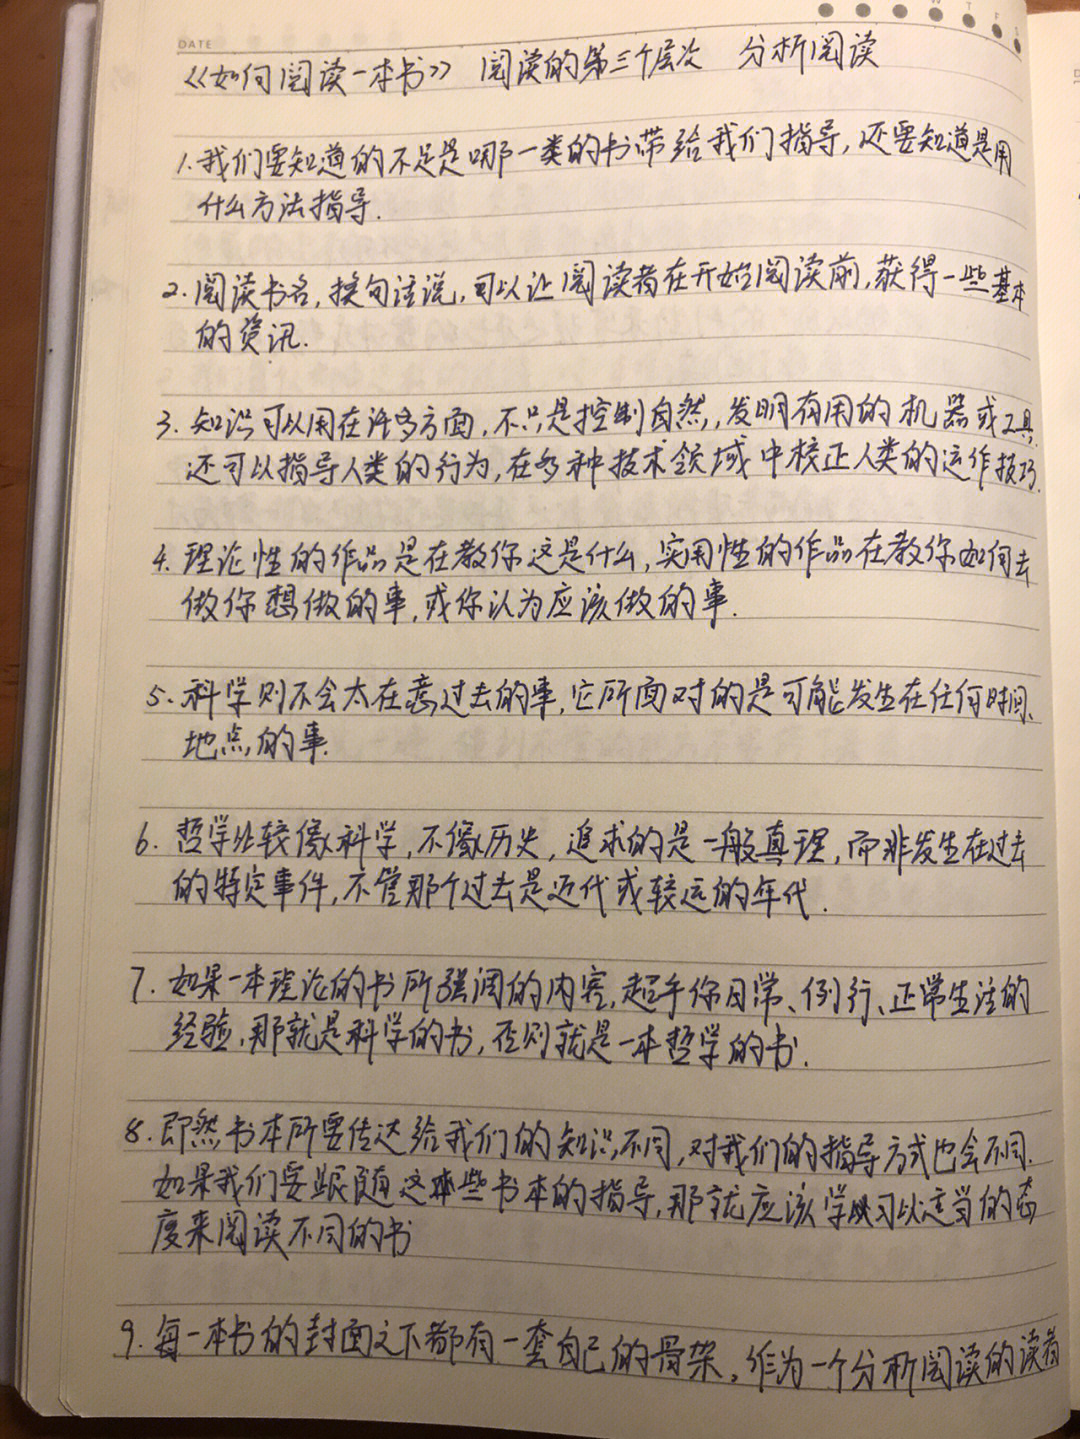 DATE
《如何阅读一本书》 阅读的第三个层次 分析阅读
1.我们要知道的不只是哪一类的书带给我们指导,还要知道是用
什么方法指导.
2.阅读书名,换句话说,可以让阅读者在开始阅读前,获得一些基本
的资讯.
3.知识可以用在许多方面,不只是控制自然,发明有用的机器或工具.
还可以指导人类的行为,在多种技术领域中校正人类的运作技巧.
4.理论性的作品是在教你这是什么,实用性的作品在教你如何去
做你想做的事,或你认为应该做的事.
5.科学则不会太在意过去的事,它所面对的是可能发生在任何时间、
地点的事.
6.哲学比较像科学,不像历史,追求的是一般真理,而非发生在过去
的特定事件,不管那个过去是近代或较远的年代.
7.如果一本理论的书所强调的内容,超乎你日常、例行、正常生活的
经验,那就是科学的书,否则就是一本哲学的书.
8.即然书本所要传达给我们的知识不同,对我们的指导方式也会不同.
如果我们要跟随这些书本的指导,那就应该学习以适当的态
度来阅读不同的书
9.每一本书的封面之下都有一套自己的骨架,作为一个分析阅读的读者